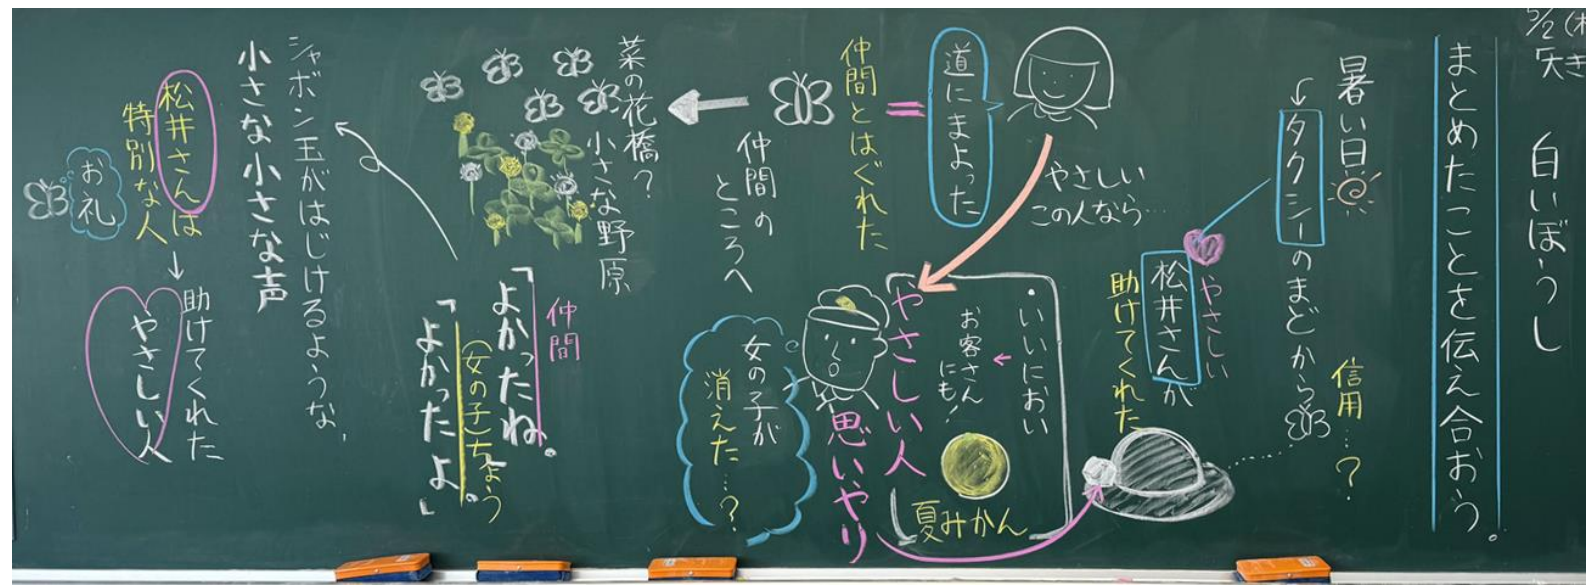 5/2
白いぼうし
まとめたことを伝え合おう。
暑い日
タクシーのまどから
信用…？
やさしい
松井さんが
助けてくれた
やさしい
この人なら…
道にまよった
仲間とはぐれた
・いいにおい
お客さん
にも！
夏みかん
やさしい人
思いやり
女の子が
消えた…？
仲間の
ところへ
菜の花橋？
小さな野原
仲間
「よかったね。
(女の子)ちょう
「よかったよ。」
シャボン玉がはじけるような、
小さな小さな声
松井さんは
特別な人
お礼
助けてくれた
やさしい人